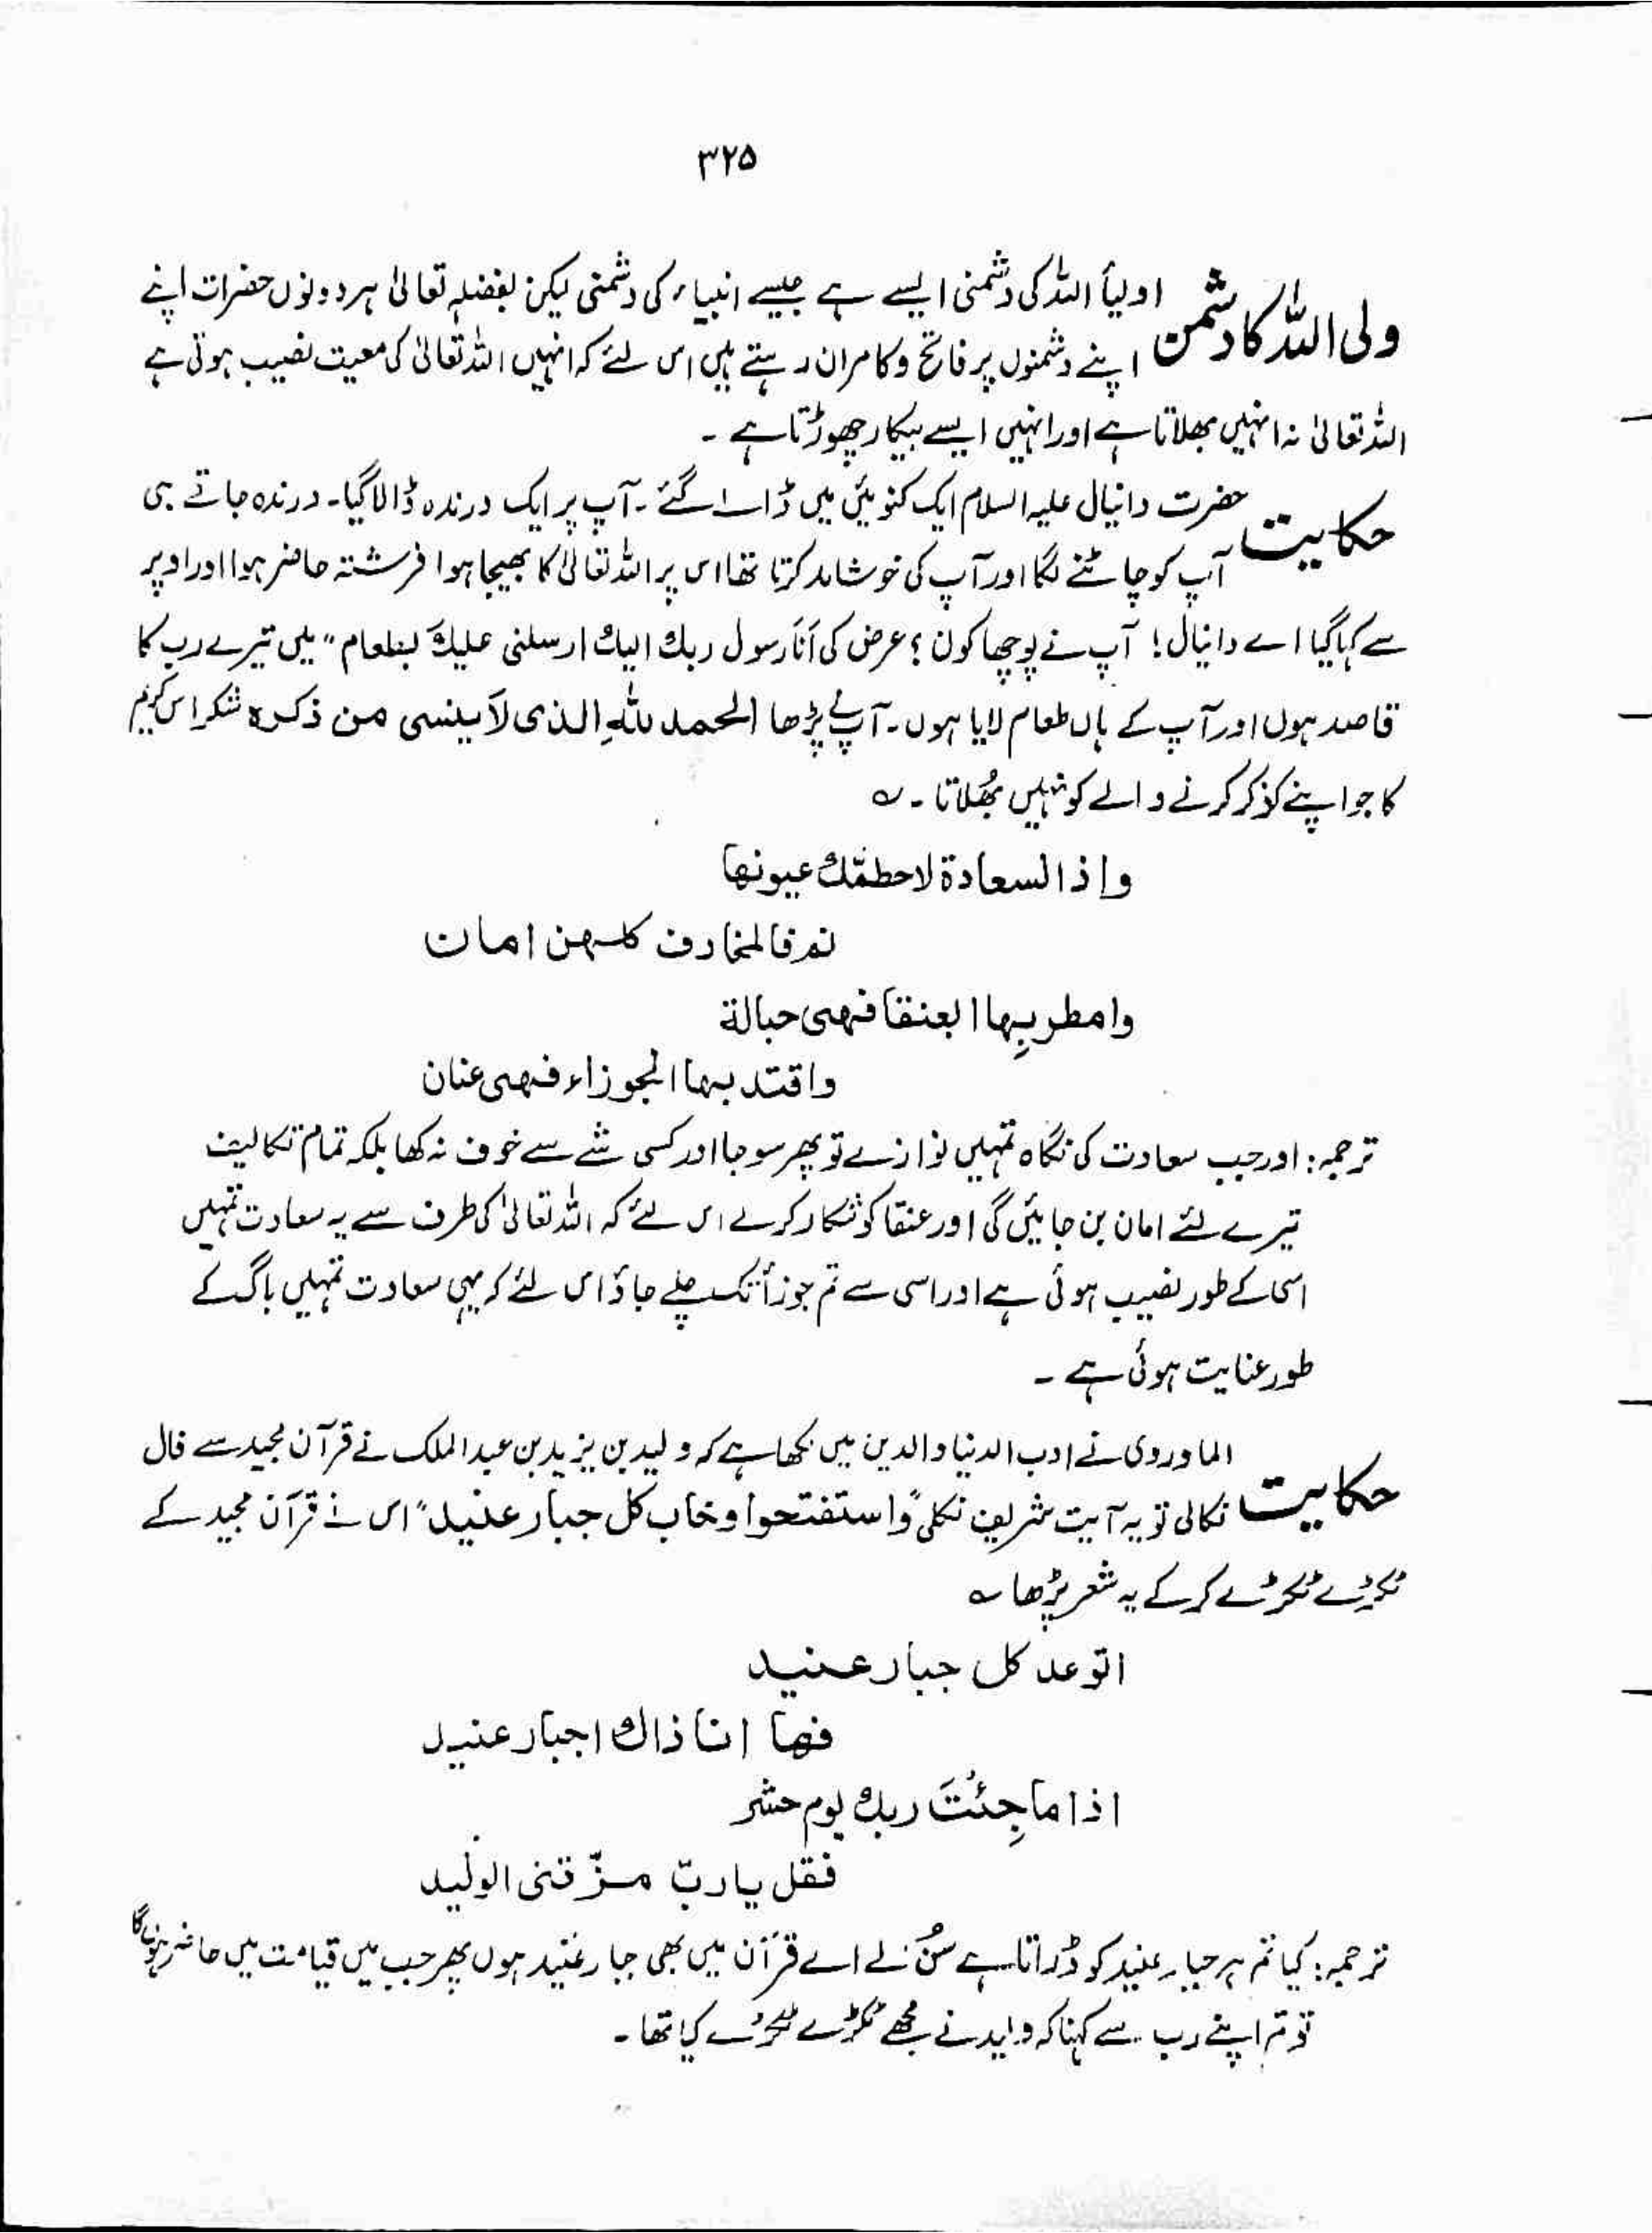 ۳۲۵
ولی اللہ کا دشمن اولیأ اللہ کی دشمنی ایسے ہے جیسے انبیاء کی دشمنی لیکن بفضلہٖ تعالیٰ ہر دونوں حضرات اپنے
اپنے دشمنوں پر فاتح و کامران رہتے ہیں اس لئے کہ انہیں اللہ تعالیٰ کی معیت نصیب ہوتی ہے
اللہ تعالیٰ نہ انہیں بھلاتا ہے اور انہیں ایسے بیکار چھوڑتا ہے ۔
حکایت حضرت دانیال علیہ السلام ایک کنوئیں میں ڈالے گئے ۔ آپ پر ایک درندہ ڈالا گیا۔ درندہ جاتے ہی
آپ کو چاٹنے لگا اور آپ کی خوشامد کرتا تھا اس پر اللہ تعالیٰ کا بھیجا ہوا فرشتہ حاضر ہوا اور اوپر
سے کہا گیا اے دانیال! آپ نے پوچھا کون ؟ عرض کی اَنَا رسول ربك الیك ارسلنی علیكَ بطعام ” میں تیرے رب کا
قاصد ہوں اور آپ کے ہاں طعام لایا ہوں۔ آپ نے پڑھا الحمد للّٰهِ الذی لاَ ینسی من ذکرہ شکر اس کریم
کا جو اپنے کو ذکر کرنے والے کو نہیں بُھلاتا ۔ ؎
واذا السعادة لاحظتّك عیونها
نم فالمخاوف کلهن امان
وامطر بِها العنقا فهی حبالة
واقتد بها الجوزاء فهی عنان
ترجمہ: اور جب سعادت کی نگاہ تمہیں نوازے تو پھر سو جا اور کسی شے سے خوف نہ کھا بلکہ تمام تکالیف
تیرے لئے امان بن جائیں گی اور عنقا کو شکار کرلے اس لئے کہ اللہ تعالیٰ کی طرف سے یہ سعادت تمہیں
اسی کے طور نصیب ہوئی ہے اور اسی سے تم جوزأ تک چلے جاؤ اس لئے کہ یہی سعادت تمہیں باگ کے
طور عنایت ہوئی ہے ۔
حکایت الماوردی نے ادب الدنیا والدین میں لکھا ہے کہ ولید بن یزید بن عبدالملک نے قرآن مجید سے فال
نکالی تو یہ آیت شریف نکلی ”واستفتحوا وخاب کل جبار عنید“ اس نے قرآن مجید کے
ٹکڑے ٹکڑے کرکے یہ شعر پڑھا ؎
اتوعد کل جبار عنید
فها انا ذاك اجبار عنید
اذا ما جِئتَ ربك یوم حشر
فقل یا ربّ مزّقنی الولید
ترجمہ: کیا تم ہر جبار عنید کو ڈراتا ہے سُن لے اے قرآن میں بھی جبار عنید ہوں پھر جب میں قیامت میں حاضر ہوں گا
تو تم اپنے رب سے کہنا کہ ولید نے مجھے ٹکڑے ٹکڑے کیا تھا ۔